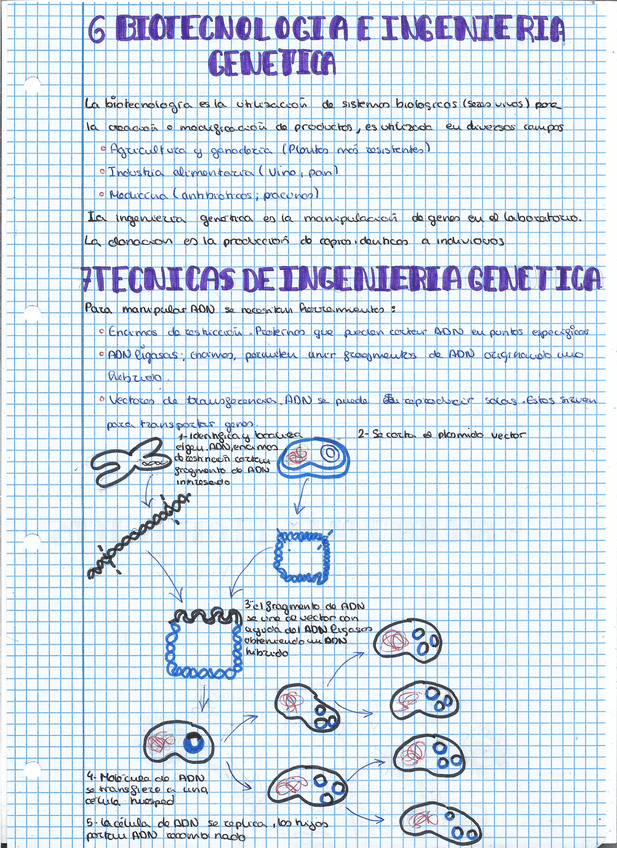 6 BIOTECNOLOGIA E INGENIERIA
GENETICA
La biotecnología es la utilización de sistemas biológicos (seres vivos) para
la creación o modificación de productos, es utilizada en diversos campos
Agricultura y ganadería (Plantas más resistentes)
Industria alimentaria (Vino, pan)
Medicina (antibióticos,
La ingeniería genética es la manipulación de genes en el laboratorio.
La clonación es la producción de copias idénticas a individuos
7 TECNICAS DE INGENIERIA GENETICA
Para manipular ADN se necesitan herramientas:
Enzimas de restricción. Proteínas que pueden cortar ADN en puntos específicos
ADN ligasas; enzimas, permiten unir fragmentos de ADN originando uno
híbrido.
Vectores de transferencia. ADN se puede reproducir solas. Estos sirven
para transportar genes
1- Identifica y
el gen. ADN, enzimas
de restricción cortan
fragmento de ADN
interesado
2- Se corta el plasmido vector
3- el fragmento de ADN
se une al vector con
ayuda del ADN ligasas
obteniendo un ADN
híbrido
4- Molécula de ADN
se transfiere a una
célula huesped
5- La célula de ADN se replica, los hijos
portan ADN recombinado